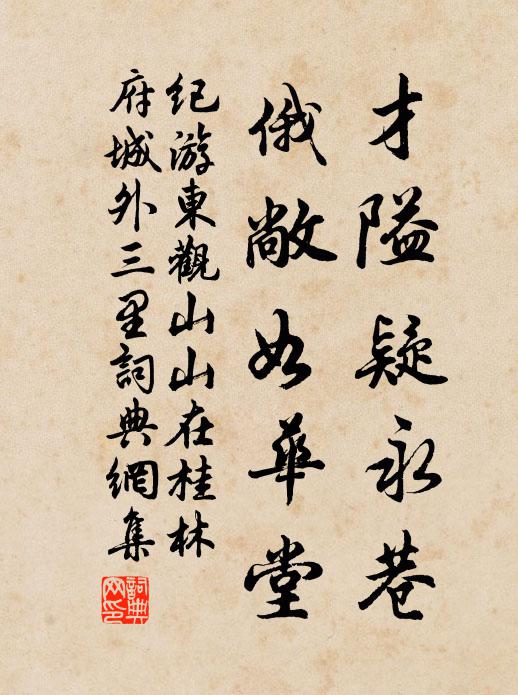 才隘疑永巷
俄敞如華堂
纪游東觀山山在桂林
府城外三里詞典網集
詞典網印